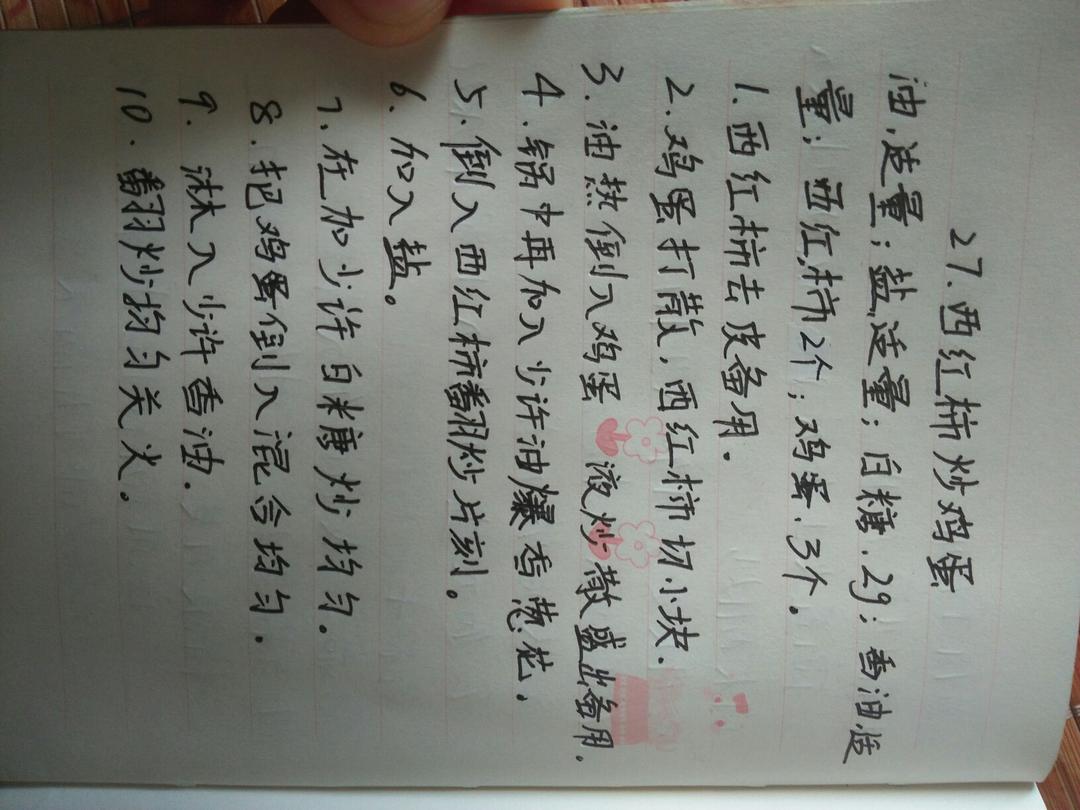 27.西红柿炒鸡蛋
油,适量;盐,适量;白糖.2g;香油,适
量;西红柿2个;鸡蛋.3个。
1.西红柿去皮备用.
2.鸡蛋打散,西红柿切小块.
3.油热倒入鸡蛋液炒散盛出备用.
4.锅中再加入少许油爆香葱花.
5.倒入西红柿翻炒片刻。
6.加入盐。
7.在加少许白糖炒均匀.
8.把鸡蛋倒入混合均匀.
9.淋入少许香油.
10.翻炒均匀关火.